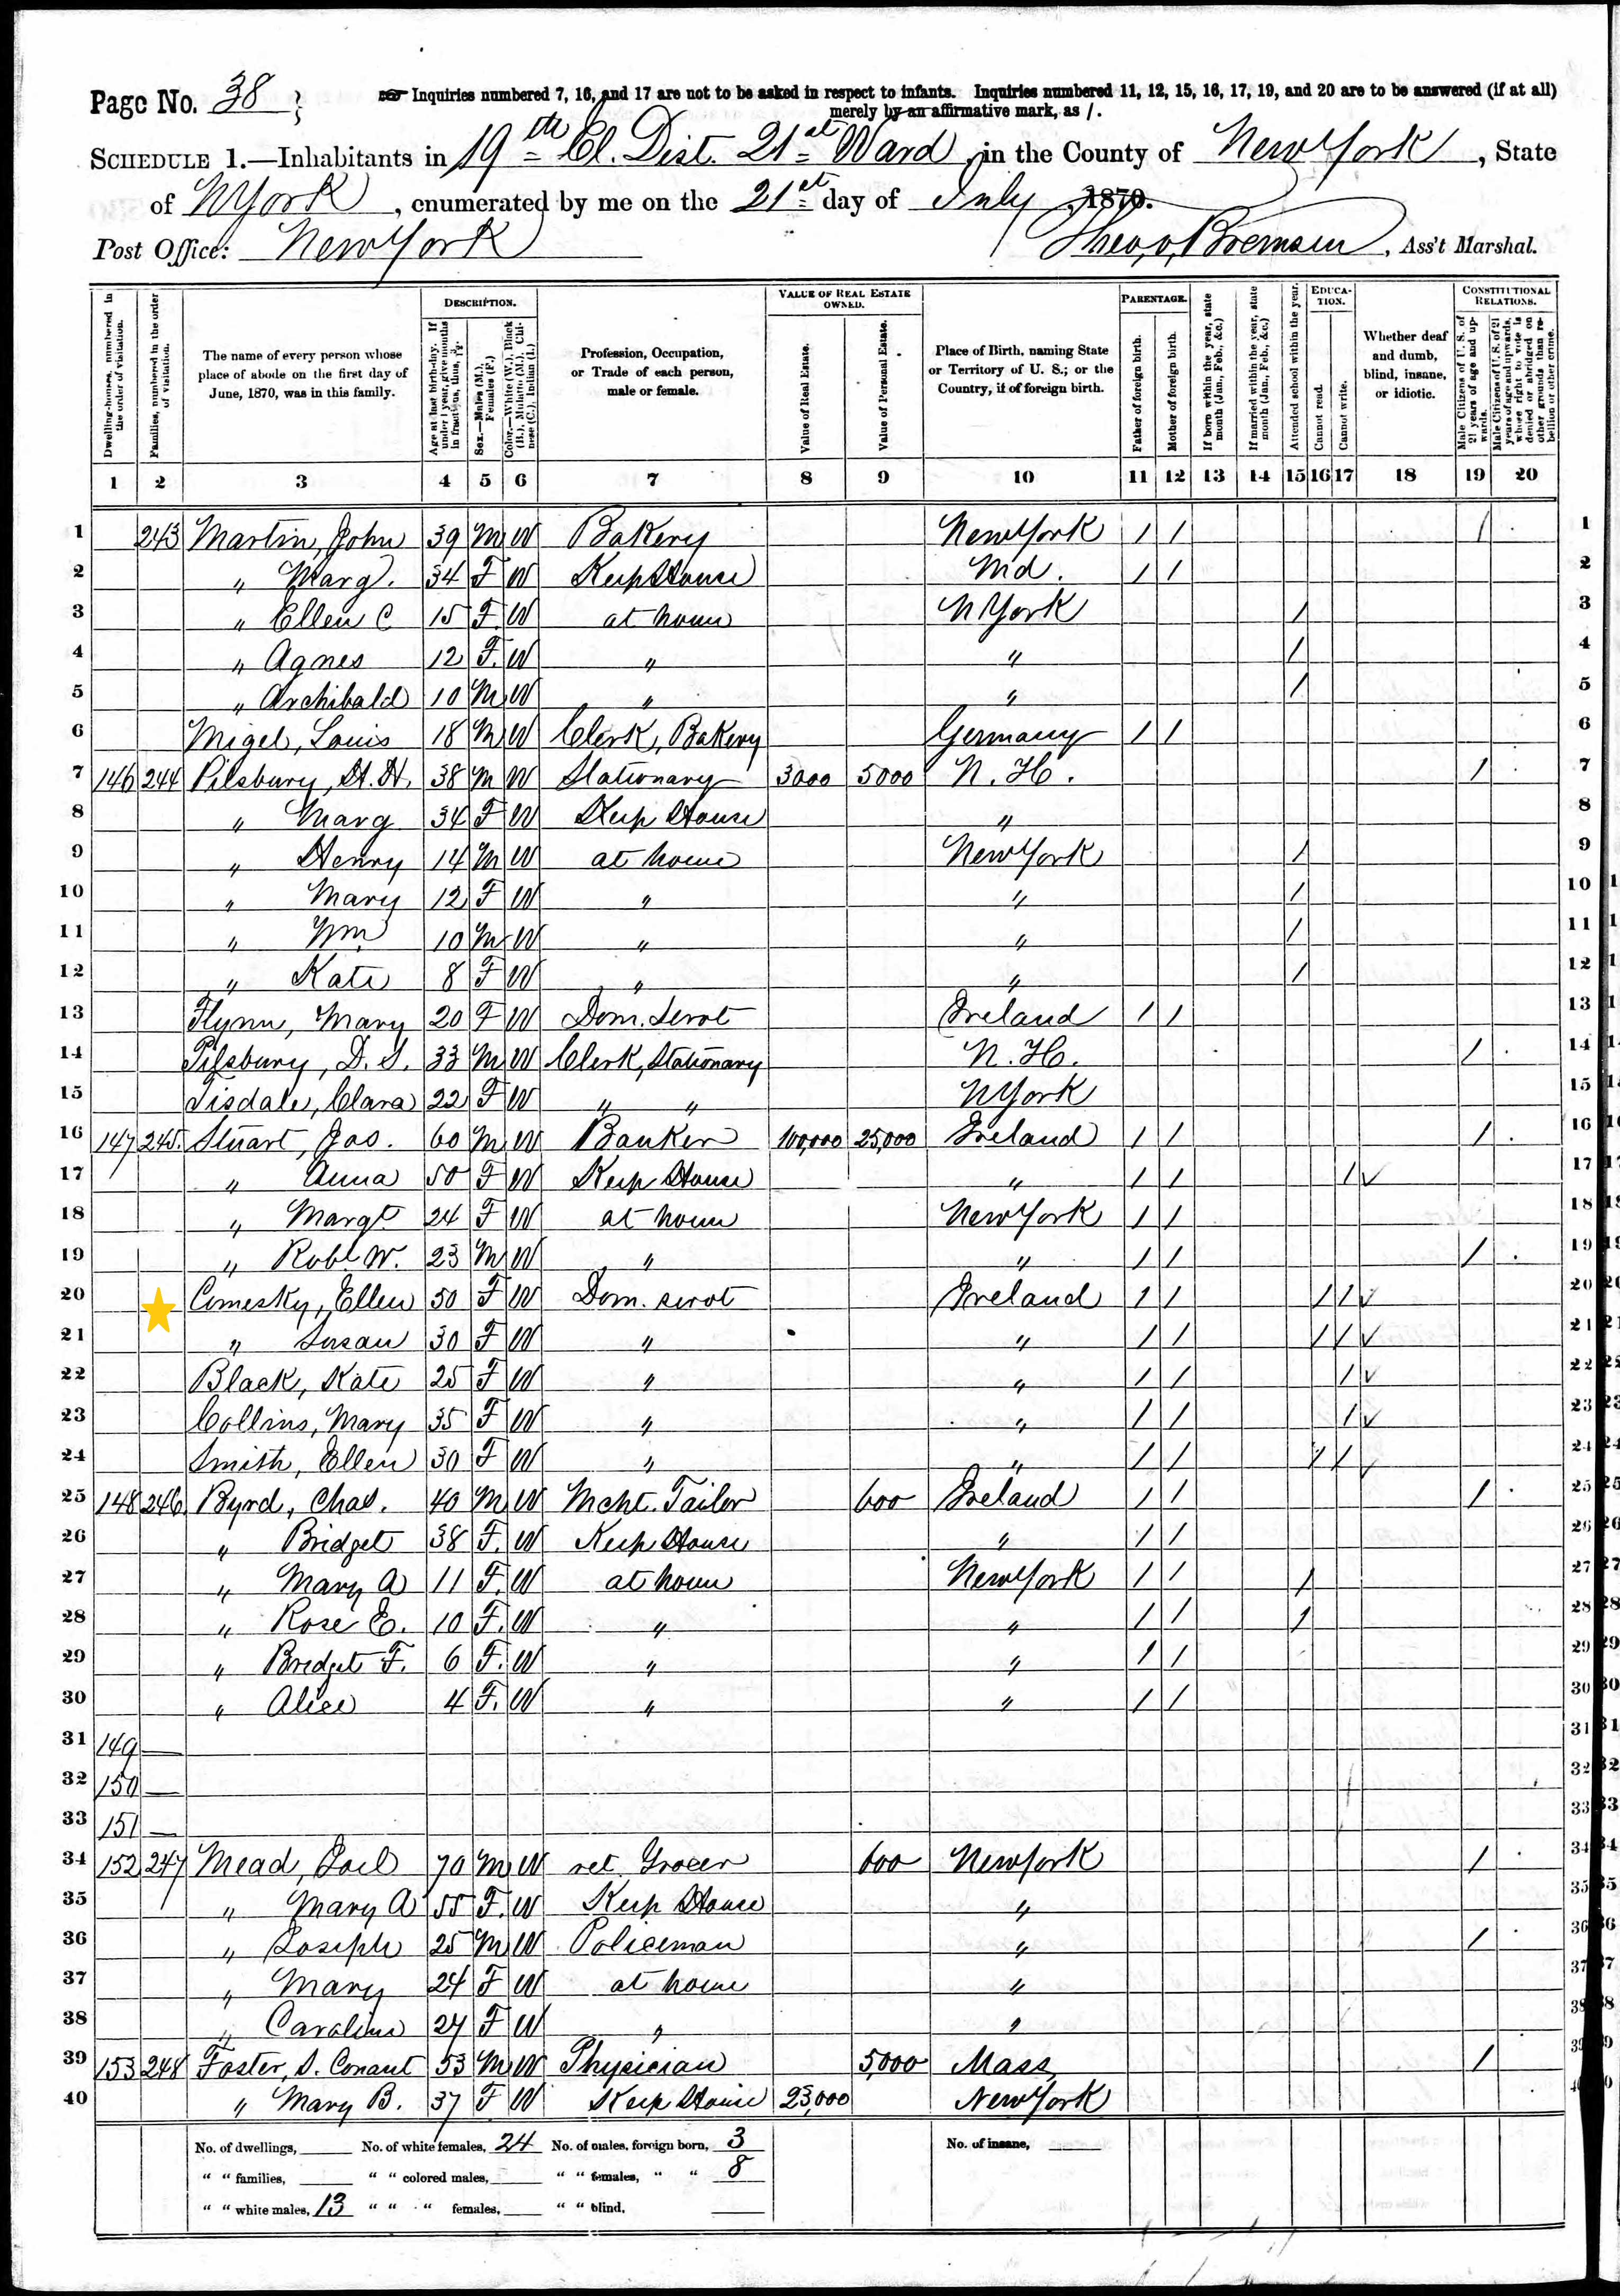 Page No. 38
Inquiries numbered 7, 16, and 17 are not to be asked in respect to infants. Inquiries numbered 11, 12, 15, 16, 17, 19, and 20 are to be answered (if at all)
merely by an affirmative mark, as /.
SCHEDULE 1.—Inhabitants in 19th El. Dist. 21st Ward, in the County of New York, State
of N York, enumerated by me on the 21st day of July, 1870.
Post Office: New York
, Ass't Marshal.
Dwelling-houses, numbered in the order of visitation.
Families, numbered in the order of visitation.
The name of every person whose place of abode on the first day of June, 1870, was in this family.
DESCRIPTION.
Age at last birth-day. If under 1 year, give months in fractions, thus, 3/12
Sex.—Males (M.), Females (F.)
Color.—White (W.), Black (B.), Mulatto (M.), Chinese (C.), Indian (I.)
Profession, Occupation, or Trade of each person, male or female.
VALUE OF REAL ESTATE OWNED.
Value of Real Estate.
Value of Personal Estate.
Place of Birth, naming State or Territory of U. S.; or the Country, if of foreign birth.
PARENTAGE.
Father of foreign birth.
Mother of foreign birth.
If born within the year, state month (Jan., Feb., &c.)
If married within the year, state month (Jan., Feb., &c.)
Attended school within the year.
EDUCATION.
Cannot read.
Cannot write.
Whether deaf and dumb, blind, insane, or idiotic.
CONSTITUTIONAL RELATIONS.
Male Citizens of U. S. of 21 years of age and upwards.
Male Citizens of U. S. of 21 years of age and upwards, whose right to vote is denied or abridged on other grounds than rebellion or other crime.
1 2 3 4 5 6 7 8 9 10 11 12 13 14 15 16 17 18 19 20
1 243 Martin, John 39 M W Bakery New York / / / 1
2 " Marg. 34 F W Keep House Md. / / 2
3 " Ellen C 15 F W at home N York / 3
4 " Agnes 12 F W " " / 4
5 " Archibald 10 M W " " / 5
6 Migel, Louis 18 M W Clerk, Bakery Germany / / 6
7 146 244 Pilsbury, H. H. 38 M W Stationary 3000 5000 N. H. / 7
8 " Marg 34 F W Keep House " 8
9 " Henry 14 M W at home New York / 9
10 " Mary 12 F W " " / 10
11 " Wm 10 M W " " / 11
12 " Kate 8 F W " " / 12
13 Flynn, Mary 20 F W Dom. Servt Ireland / / 13
14 Pilsbury, D. S. 33 M W Clerk, Stationary N. H. / 14
15 Tisdale, Clara 22 F W " " N York 15
16 147 245 Stuart, Jas. 60 M W Banker 100,000 25,000 Ireland / / / 16
17 " Anna 50 F W Keep House " / / / ✓ 17
18 " Margt 24 F W at home New York / / 18
19 " Robt W. 23 M W " " / / / 19
20 Comesky, Ellen 50 F W Dom. servt Ireland / / / / ✓ 20
21 " Susan 30 F W " " / / / / ✓ 21
22 Black, Kate 25 F W " " / / / ✓ 22
23 Collins, Mary 35 F W " " / / / ✓ 23
24 Smith, Ellen 30 F W " " / / / / ✓ 24
25 148 246 Byrd, Chas. 40 M W Mcht. Tailor 600 Ireland / / / 25
26 " Bridget 38 F W Keep House " / / 26
27 " Mary A 11 F W at home New York / / / 27
28 " Rose E. 10 F W " " / / / 28
29 " Bredget F. 6 F W " " / / 29
30 " Alice 4 F W " " / / 30
31 149 — 31
32 150 — 32
33 151 — 33
34 152 247 Mead, Joel 70 M W ret. Grocer 600 New York / 34
35 " Mary A 55 F W Keep House " 35
36 " Joseph 25 M W Policeman " / 36
37 " Mary 24 F W at home " 37
38 " Caroline 24 F W " " 38
39 153 248 Foster, S. Conant 53 M W Physician 5,000 Mass / 39
40 " Mary B. 37 F W Keep House 23,000 New York 40
No. of dwellings, No. of white females, 24 No. of males, foreign born, 3 No. of insane,
" " families, " " colored males, " " females, " " 8
" " white males, 13 " " " females, " " blind,